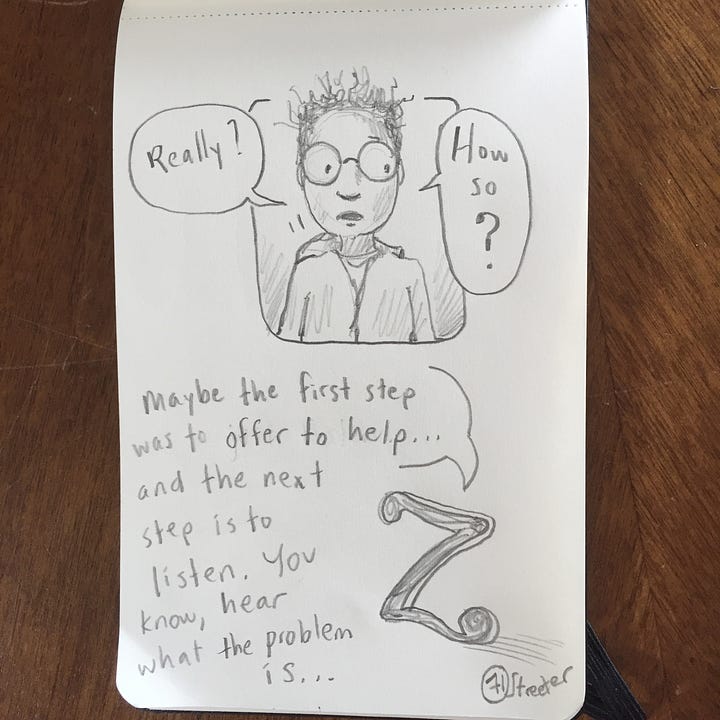 Really?
How
so
?
Maybe the first step
was to offer to help...
and the next
step is to
listen. You
know, hear
what the problem
is...
Z
71 Streeter